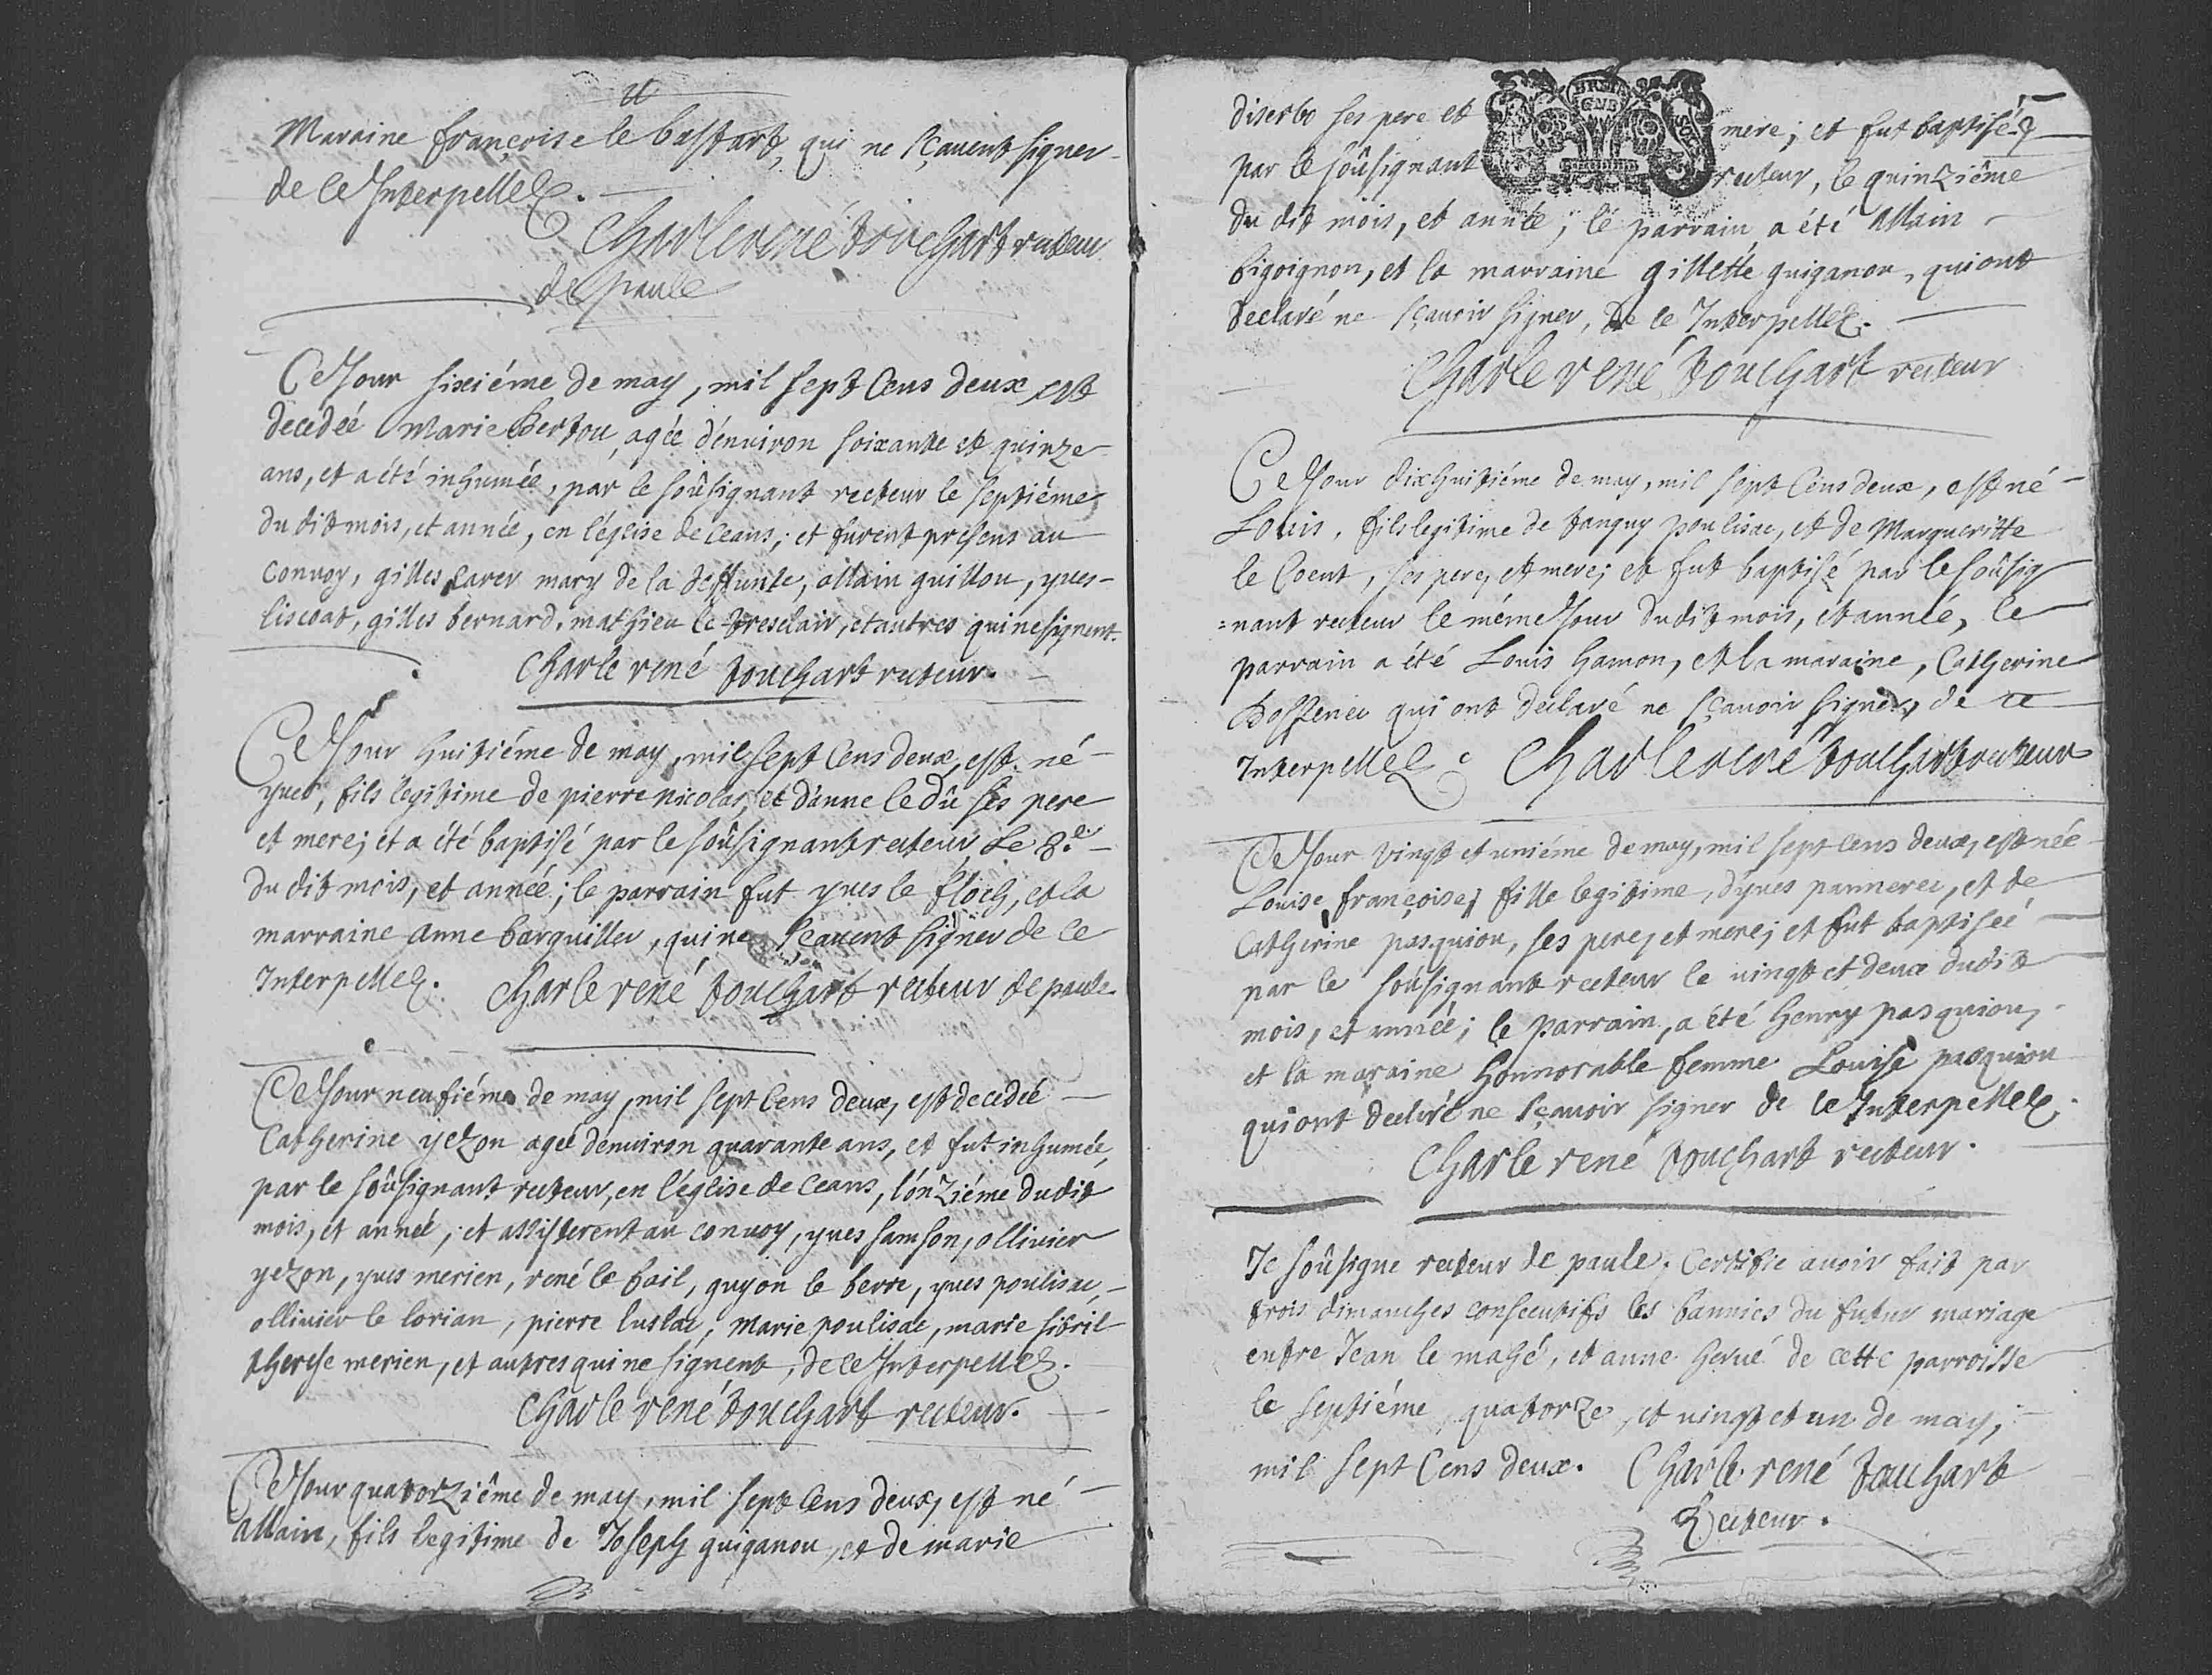 Maraine françoise le bastart, qui ne sçauent signer
de ce Interpellez.
Charle rené touchart recteur
de paule
Ce Jour sixiéme de may, mil sept Cens deux, est
decedéé Marie Bertou, agéé d'énuiron soixante et quinze
ans, et a été inhumée, par le soûsignant recteur le septiéme
du dit mois, et année, en l'église de Ceans; et furent presens au
Conuoy, gilles Carer mary de la deffunte, allain guillou, yues
liscoat, gilles bernard, mathieu le tresclair, et autres qui ne signent.
Charle rené touchart recteur.
Ce Jour huitiéme de may, mil sept Cens deux, est né
yues, fils legitime de pierre nicolas, et d'anne le dû ses pere
et mere; et a été baptisé par le soûsignant recteur Le 8.e
du dit mois, et année; le parrain fut yues le floch, et la
marraine anne barguiller, qui ne sçauent signer de ce
Interpellez. Charle rené touchart recteur de paule
Ce Jour neufiéme de may, mil sept Cens deux, est decedéé
Catherine yezon ageé denuiron quarante ans, et fut inhumée
par le soûsignant recteur, en l'église de Ceans, l'ónziéme du dit
mois, et année; et assisterent au conuoy, yues samson, olliuier
yezon, yues merien, rené le bail, guyon le berre, yues poulisac,
olliuier le lorian, pierre luslac, marie poulisac, marie sibril
therese merien, et autres qui ne signent, de ce Interpellez.
Charle rené touchart recteur.
Ce Jour quatorziême de may, mil sept Cens deux, est né
allain, fils legitime de Joseph guiganou, et de marie
diserbo ses pere et mere; et fut baptisé
par le soûsignant recteur, le quinziême
du dit mois, et année; le parrain a été allain
bigoignon, et la marraine gillette guiganou, qui ont
declaré ne sçauoir signer, de ce Interpellez.
Charle rené touchart recteur
Ce Jour dix huitiéme de may, mil sept Cens deux, est né
Louis, fils legitime de tanguy poulisac, et de Margueritte
le Coent, ses pere, et mere; et fut baptisé par le soûsig
=nant recteur le méme Jour du dit mois, et année, le
parrain a été Louis hamon, et la maraine, Catherine
Bosser qui ont declaré ne sçauoir signer, de ce
Interpellez. Charle rené touchart recteur
Ce Jour vingt et uniéme de may, mil sept Cens deux, est née
Louise françoise, fille legitime, d'yues pannerec, et de
Catherine pasquiou, ses pere, et mere; et fut baptiséé
par le soûsignant recteur le uingt et deux du dit
mois, et année; le parrain, a été henry pasquiou,
et la maraine honnorable femme Louise pasquiou
qui ont declaré ne sçauoir signer de ce Interpellez.
Charle rené touchart recteur.
Je soûsigne recteur de paule, Certifie auoir fait par
trois dimanches consecutifs les bannies du futur mariage
entre Jean le mahé, et anne herué de cette parroisse
le septiéme, quatorze, et uingt et un de may,
mil sept Cens deux. Charle rené touchart
Recteur.